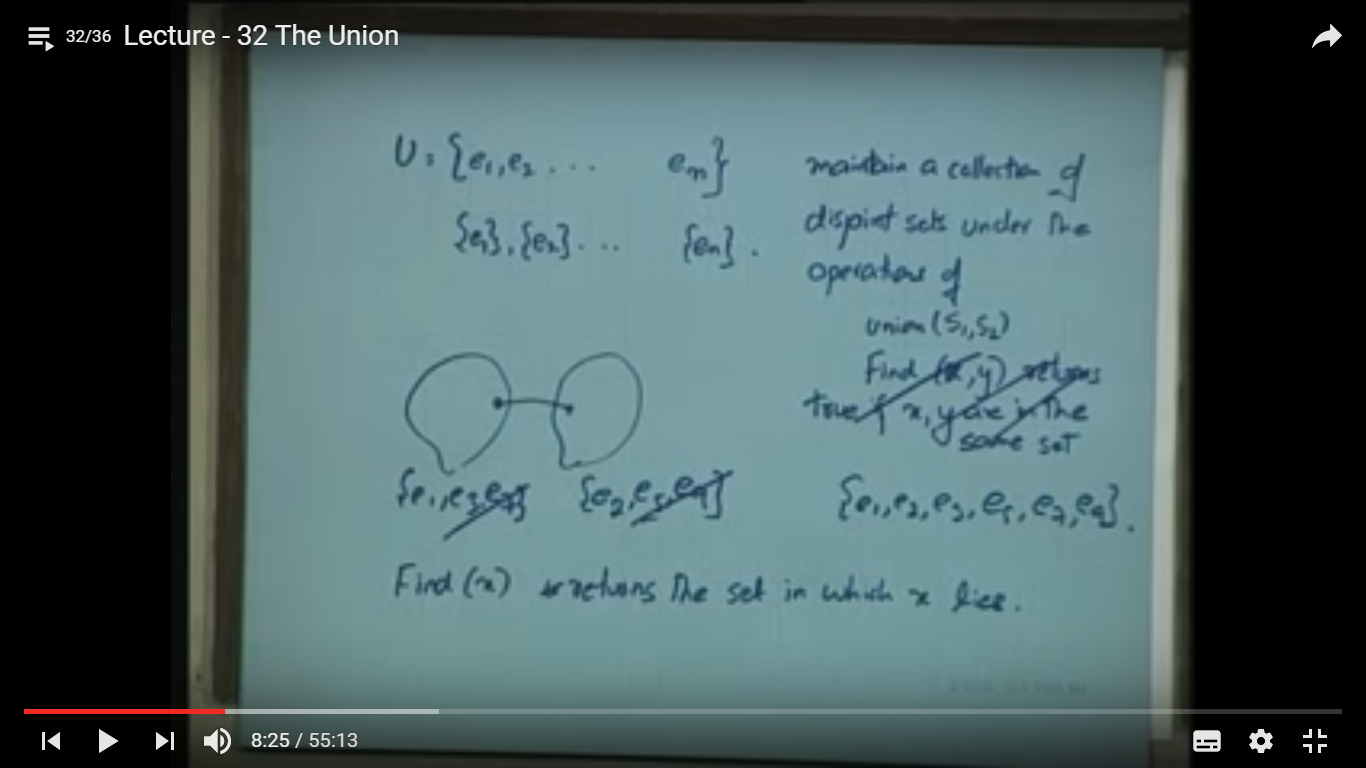 32/36 Lecture - 32 The Union
U = {e₁, e₂ . . . eₙ}
{e₁}, {e₂} . . . {eₙ} .
maintain a collection of
disjoint sets under the
operations of
union (S₁, S₂)
Find (x, y) returns
true if x, y are in the
same set
{e₁, e₃, e₇} {e₂, e₅, e₉} {e₁, e₂, e₃, e₅, e₇, e₉} .
Find (x) returns the set in which x lies .
8:25 / 55:13